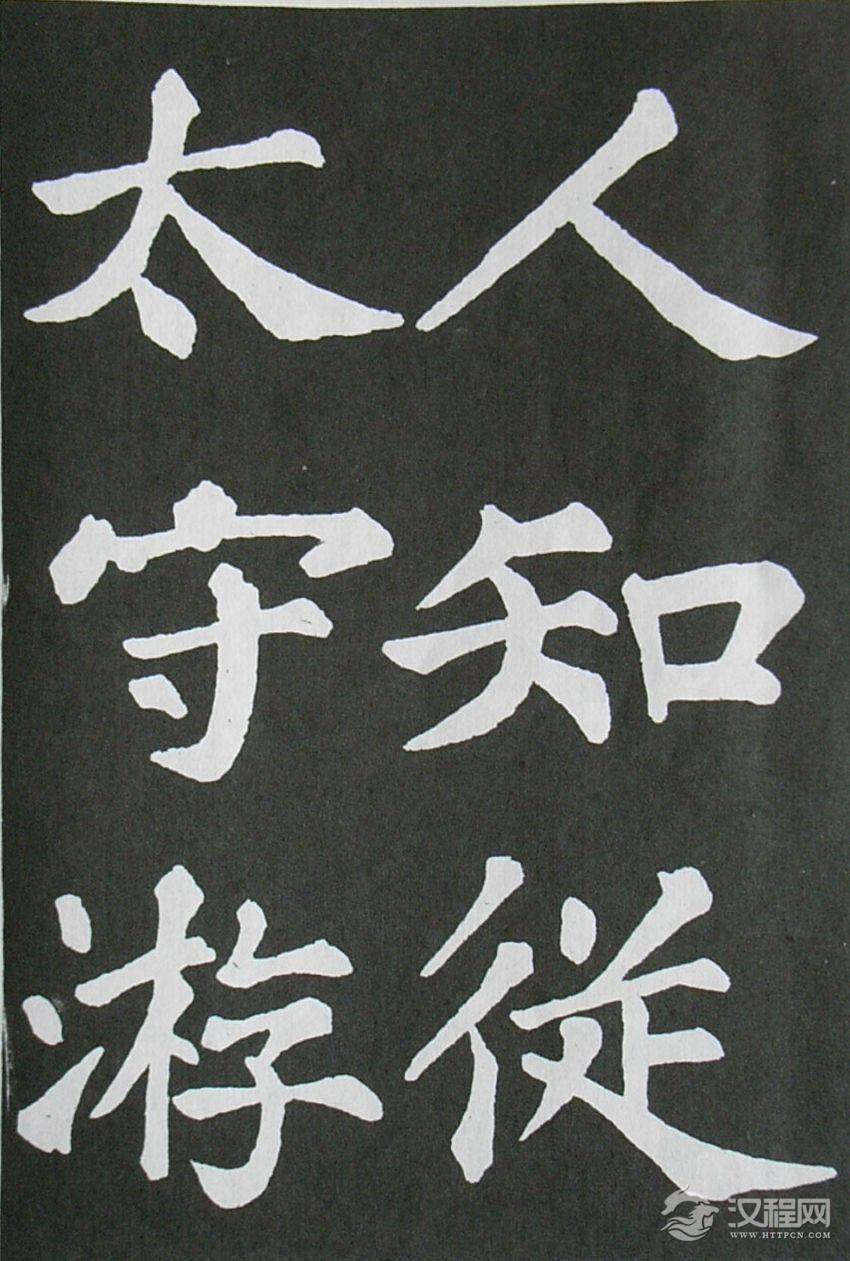 人知從
太守游
汉程网
WWW.HTTPCN.COM